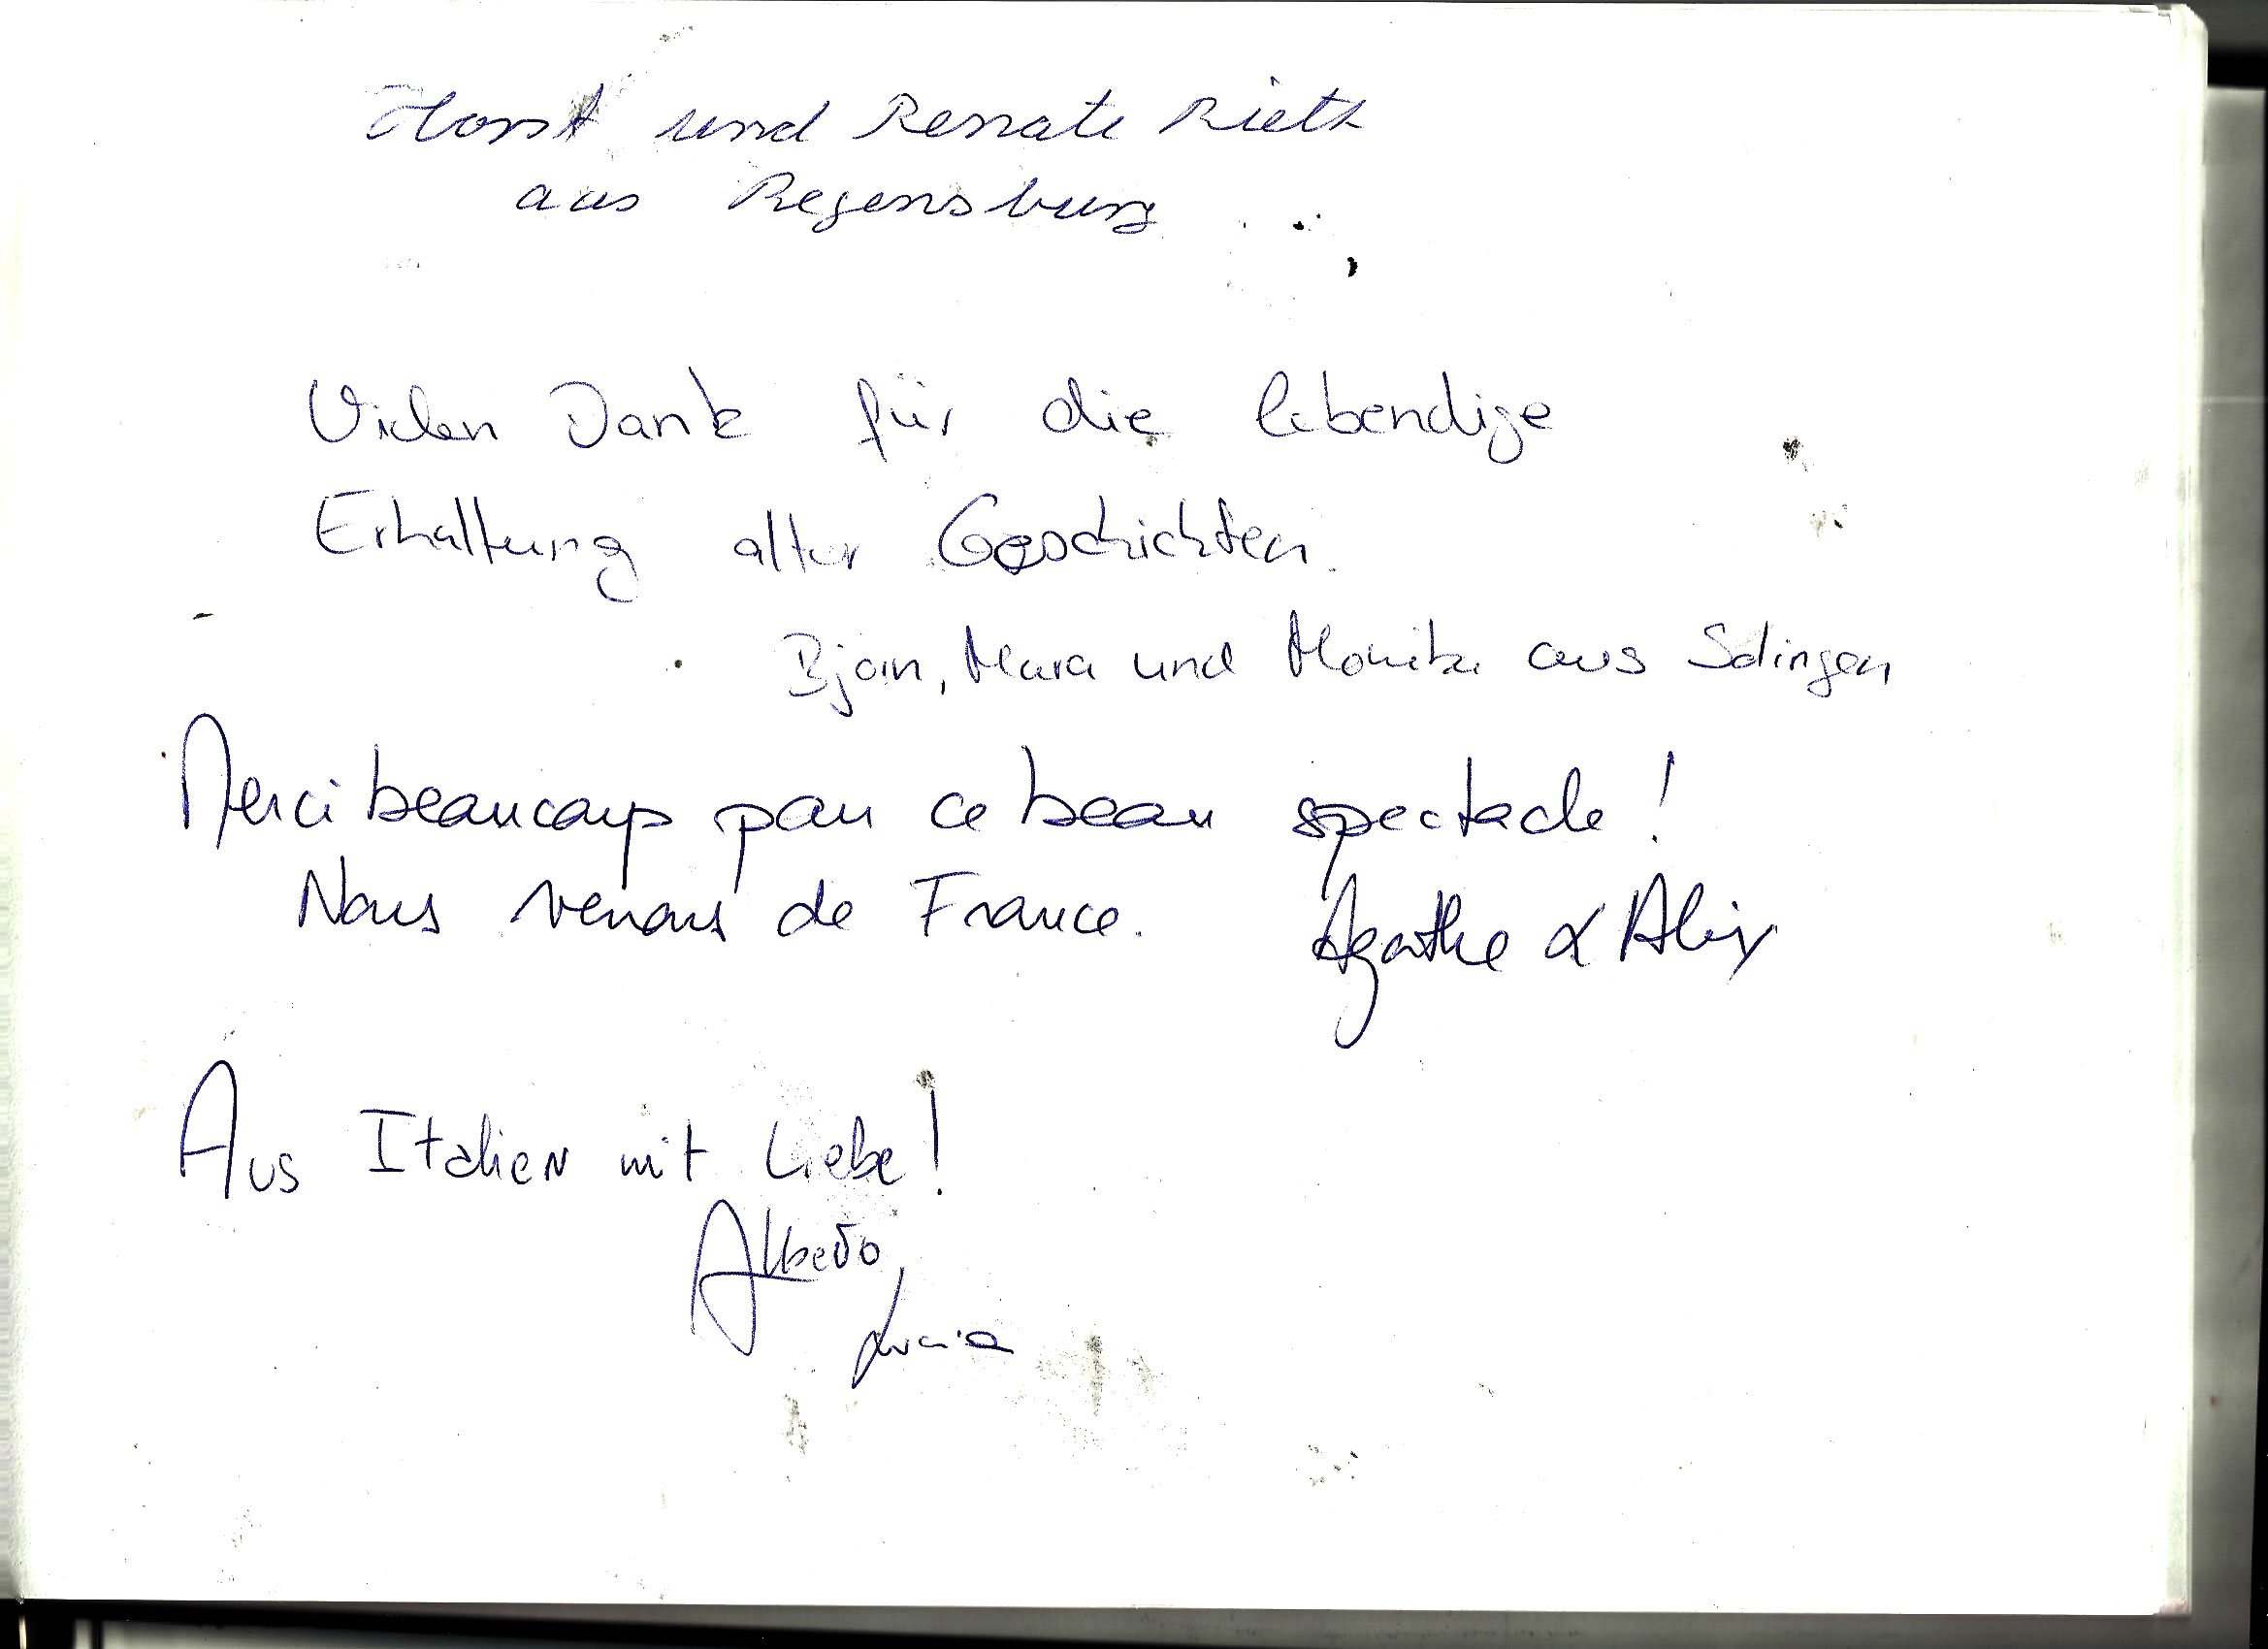 Horst und Renate Rieth
aus Regensburg
Vielen Dank für die lebendige
Erhaltung alter Geschichten.
Björn, Mara und Monika aus Solingen
Merci beaucoup pour ce beau spectacle !
Nous venons de France. Agathe & Alix
Aus Italien mit Liebe!
Lucia